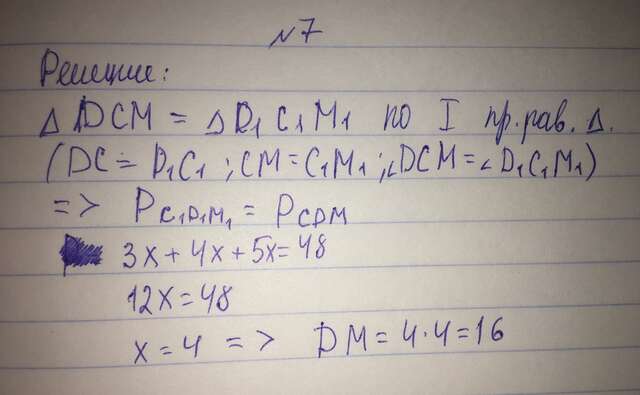 №7
Решение:
Δ DCM = Δ D₁C₁M₁ по I пр. рав. Δ.
(DC = D₁C₁ ; CM = C₁M₁ ; ∠DCM = ∠D₁C₁M₁)
=> P C₁D₁M₁ = P CDM
3x + 4x + 5x = 48
12x = 48
x = 4 => DM = 4·4 = 16